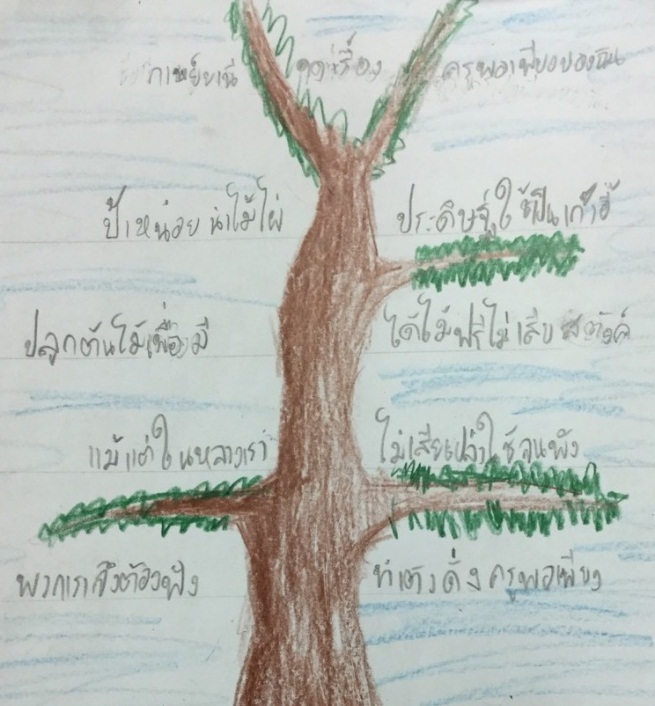 กาพย์ยานี ๑๑ เรื่อง ครูพอเพียงของฉัน
ป้าหน่อยนำไม้ไผ่ ประดิษฐ์ใช้เป็นเก้าอี้
ปลูกต้นไม้เพื่อมี ได้ไม้ฟรีไม่เสียสตังค์
แม้แต่ในหลวงเรา ไม่เสียเปล่าใช้จนพัง
พวกเราจึงต้องฟัง ทำดั่งครูพอเพียง